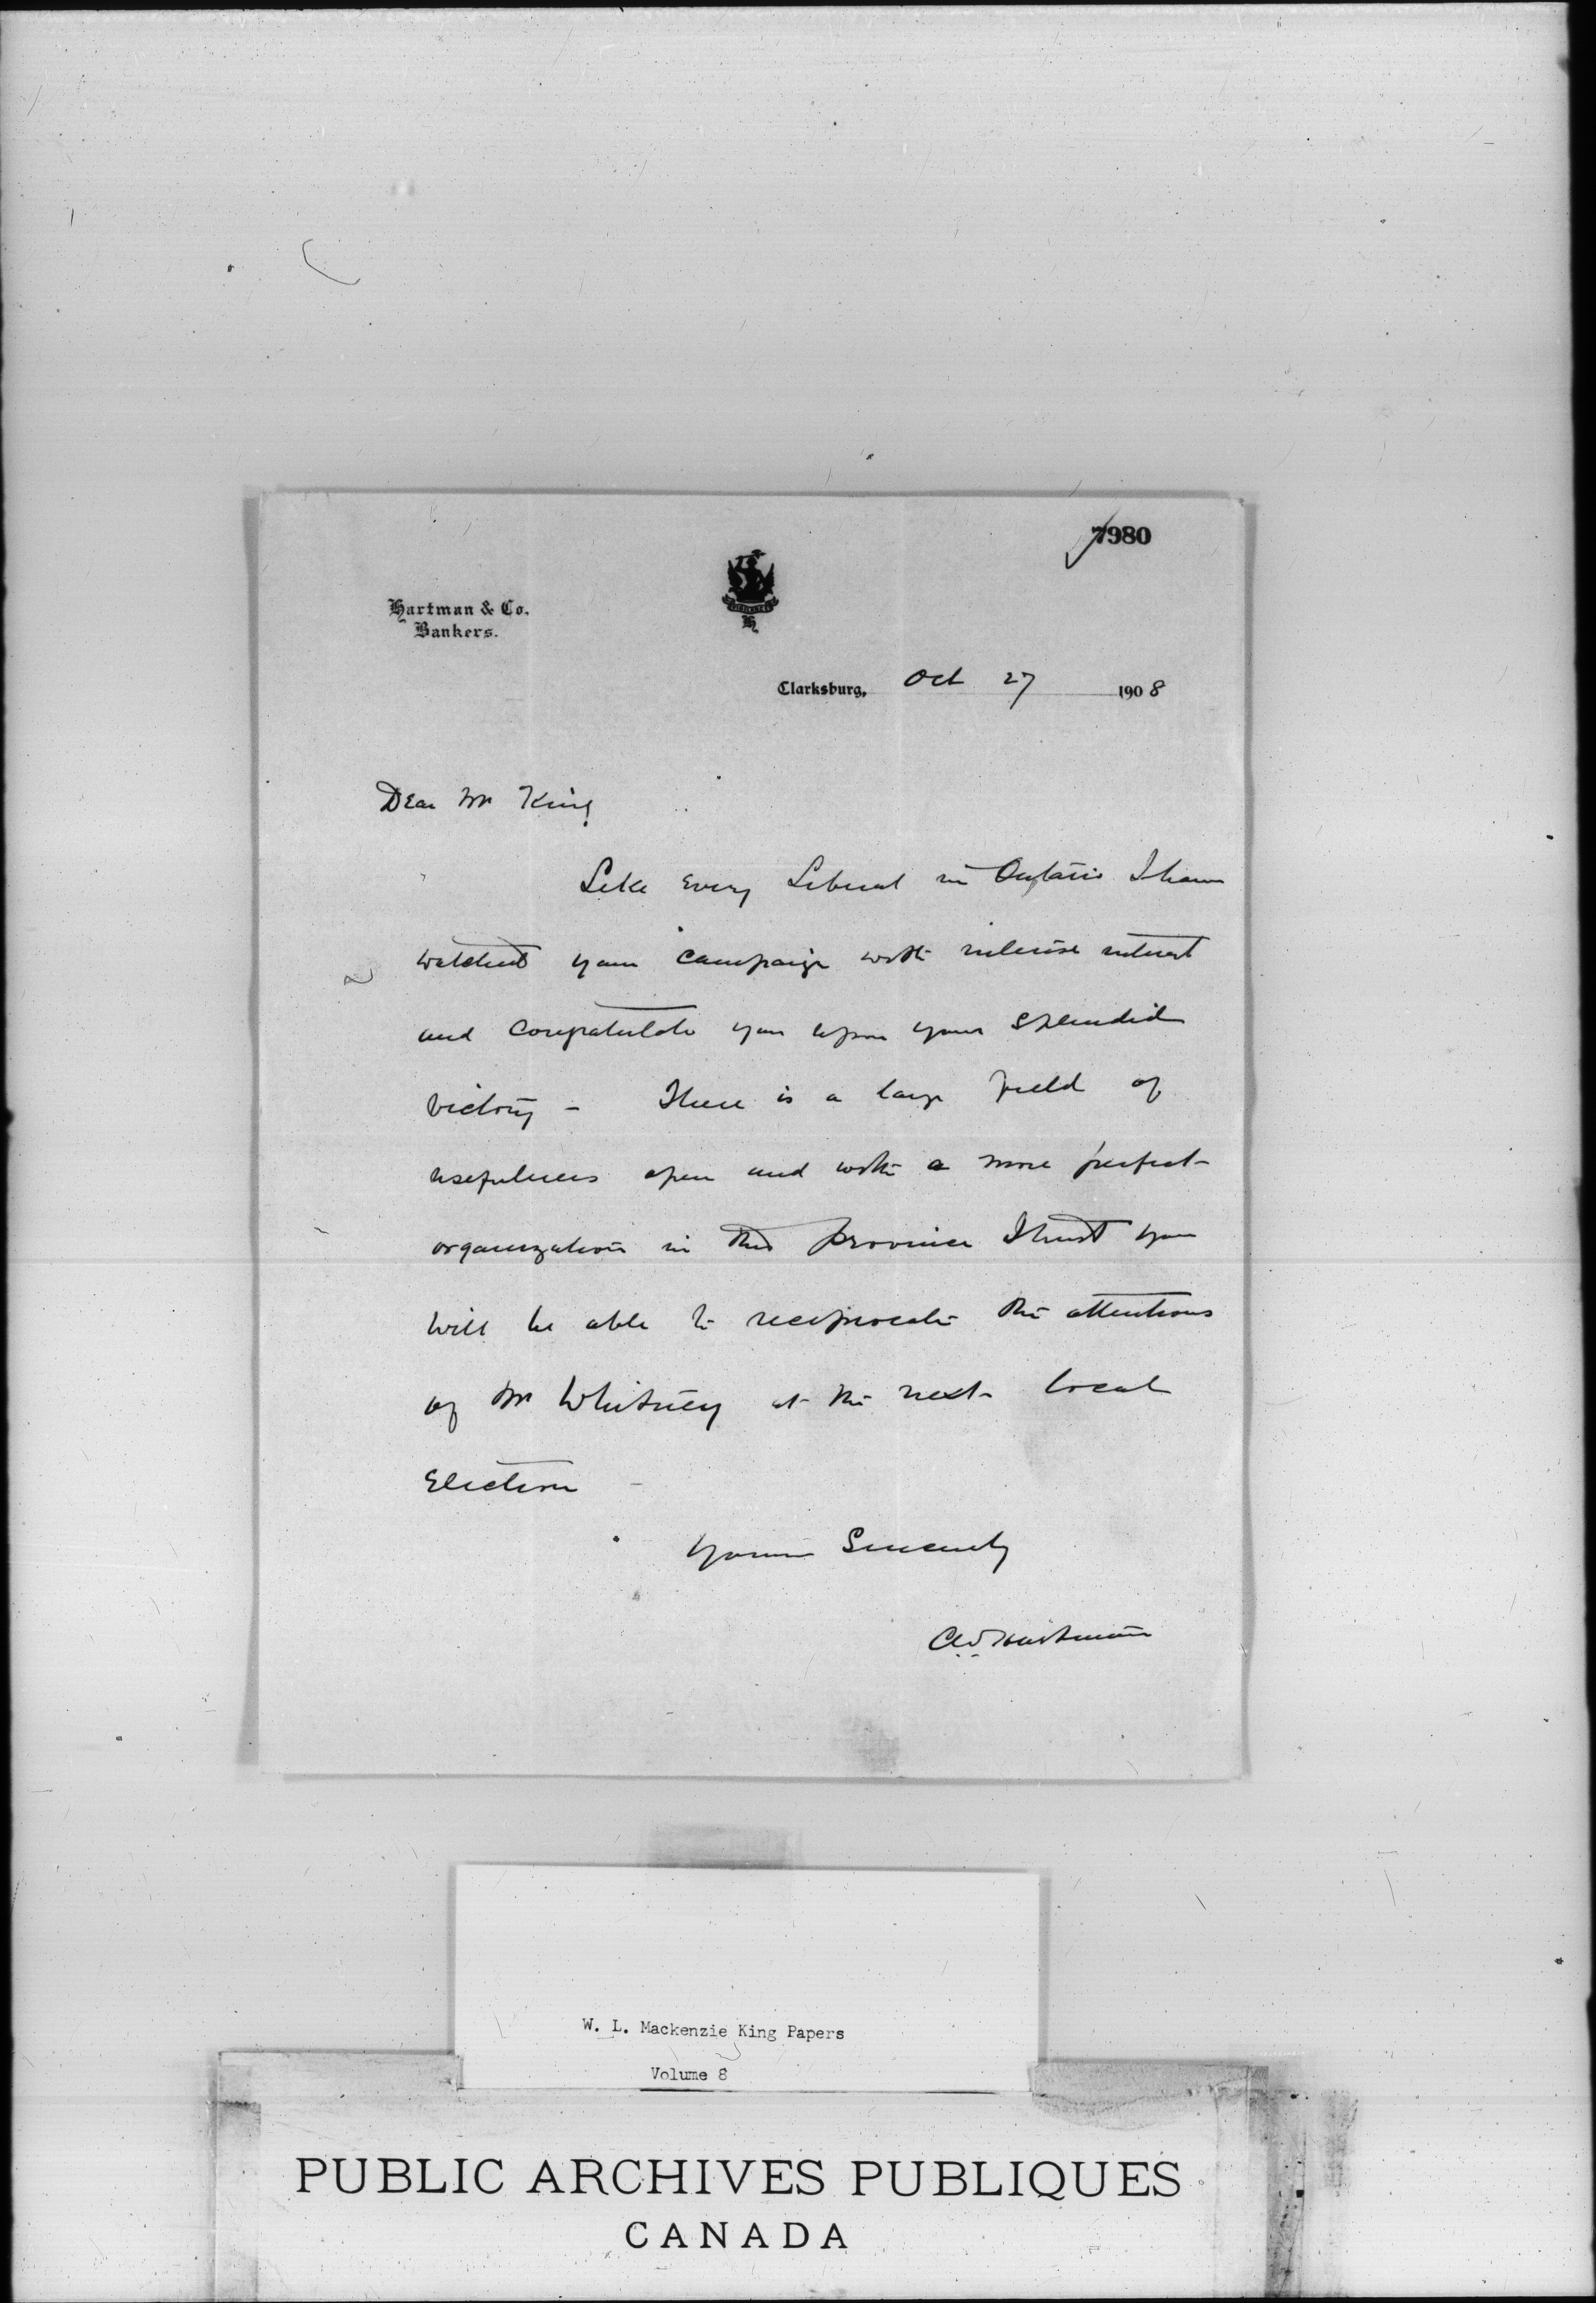 7980
Hartman & Co.
Bankers.
H
Clarksburg, Oct 27 1908
Dear Mr King
Like Every Liberal in Ontario I have
watched your campaign with intense interest
and congratulate you upon your splendid
victory - There is a large field of
usefulness open and with a more perfect
organization in this province I trust you
will be able to reciprocate the attentions
of Mr Whitney at the next local
Election -
Yours Sincerely
Hartman
W. L. Mackenzie King Papers
Volume 8
PUBLIC ARCHIVES PUBLIQUES
CANADA